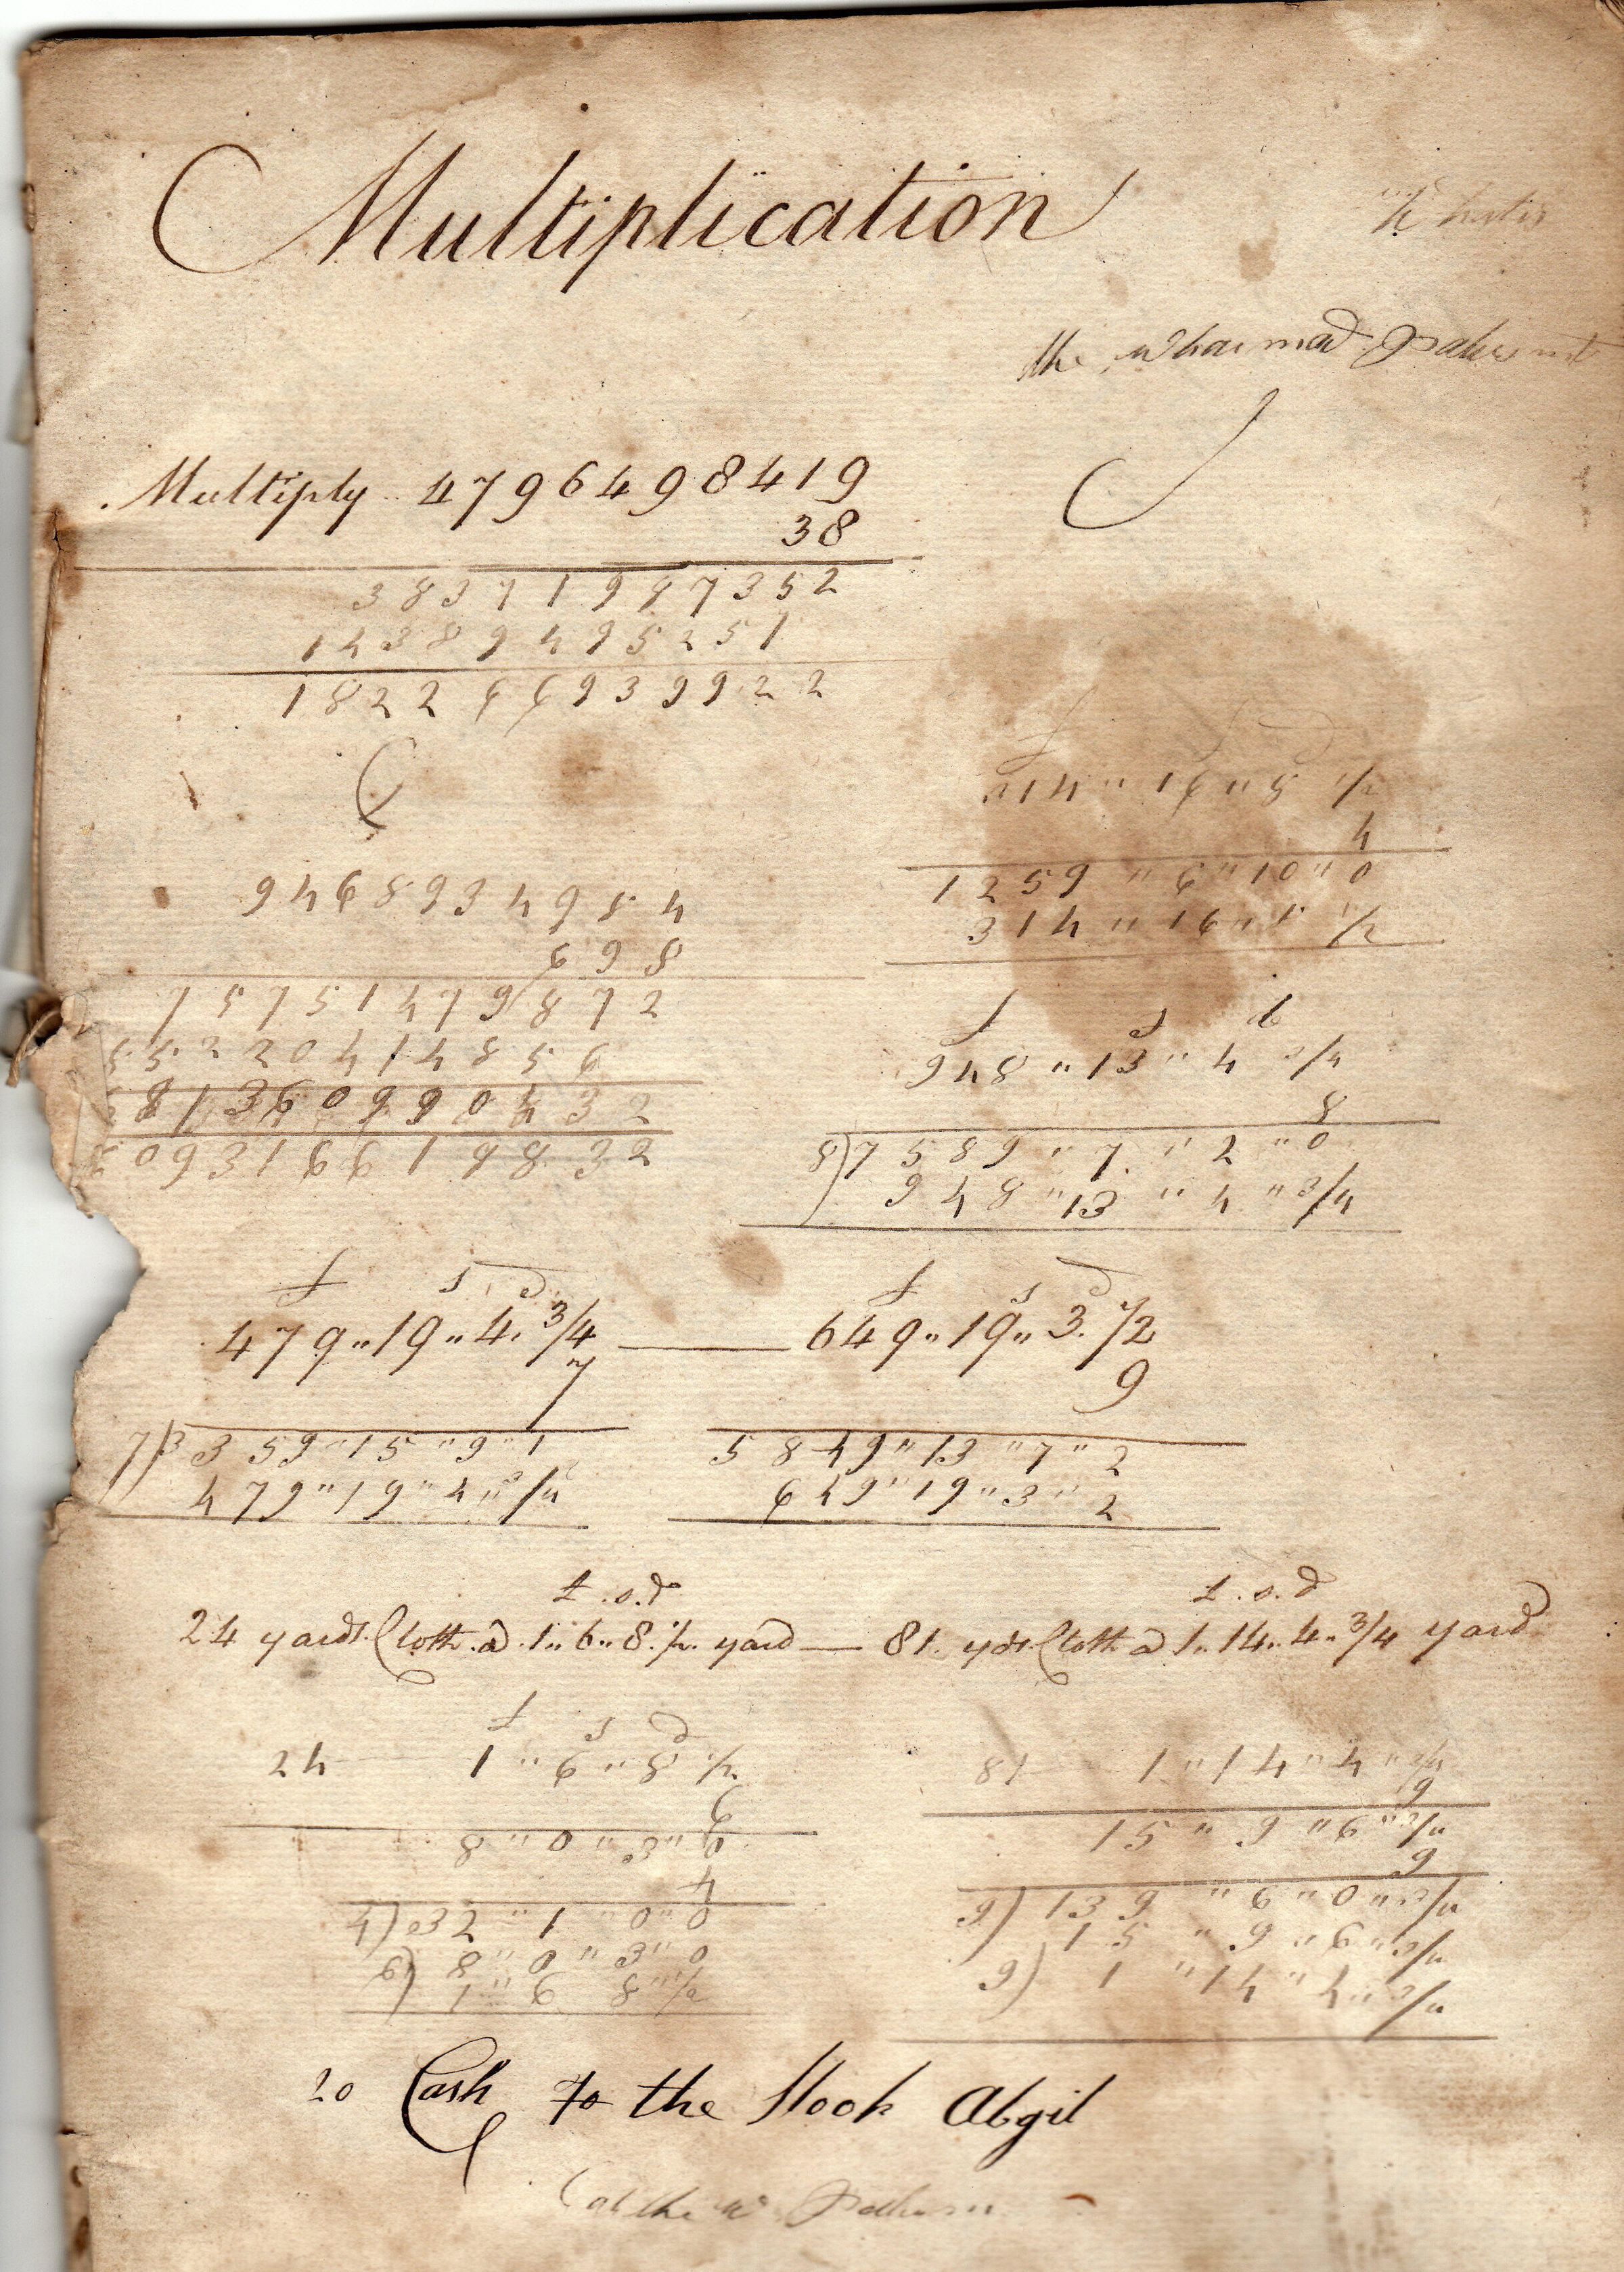 Multiplication
the
Multiply 4796498419
38
38371987352
14389495251
182266939922
9468934984
698
75751479872
85220414856
56813609904 32
£ s d
314 " 16 " 5 1/2
4
1259 " 6 " 10 " 0
314 " 16 " 5 1/2
£ s d
948 " 13 " 4 3/4
8
8) 7589 " 7 " 2 " 0
948 " 13 " 4 " 3/4
£ s d £ s d
479 " 19 " 4 . 3/4 — 649 " 19 " 3 . 1/2
7 9
7) 3359 " 15 " 9 " 1 5849 " 13 " 7 " 2
479 " 19 " 4 " 3/4 649 " 19 " 3 " 2
£ . s . d £ . s . d
24 yards Cloth a 1 " 6 " 8 . 1/2 yard — 81 yds Cloth a 1 " 14 " 4 " 3/4 yard
£ s d
24 1 " 6 " 8 1/2 81 1 " 14 " 4 " 3/4
6 9
8 " 0 " 3 " 0 15 " 9 " 6 " 3/4
4 9
4) 32 " 1 " 0 " 0 9) 139 " 6 " 0 " 3/4
6) 8 " 0 " 3 " 0 15 " 9 " 6 " 3/4
1 " 6 8 " 1/2 9) 1 " 14 " 4 " 3/4
20 Cash To the Stook Abgil
at the